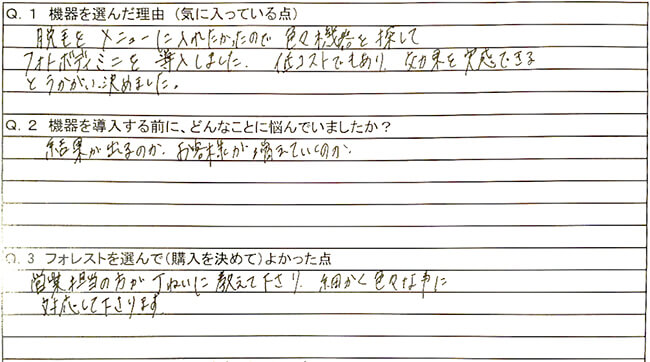 Q. 1 機器を選んだ理由（気に入っている点）
脱毛をメニューに入れたかったので色々機器を探して
フォトボディミニを導入しました。低コストでもあり、効果を実感できる
とうかがい決めました。
Q. 2 機器を導入する前に、どんなことに悩んでいましたか？
結果が出るのか、お客様が増えていくのか、
Q. 3 フォレストを選んで（購入を決めて）よかった点
営業担当の方が丁ねいに教えて下さり、細かく色々な事に
対応して下さります。